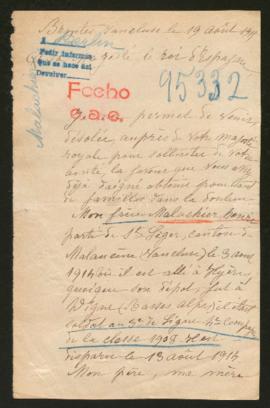 Brantes Vaucluse le 19 août 191
A Berlin
Pedir informes
que se hace del
Devolver
majesté le roi d'Espagne
95332
Fecho
G.a.c.
Malachier
permet de venir
désolée auprès de votre majesté
royale pour solliciter de votre
bonté, la faveur que vous avez
déjà daigné obtenir pour tant
de familles dans la douleur
Mon frère Malachier
parti de St Léger, canton de
Malaucène (Vaucluse) le 3 août
1914 où il est allé à Hyères
son dépôt, fut à
Digne (Basses alpes) il était
soldat au 3e de ligne 4e comp
de la classe 1908 et est
disparu le 19 août 1914
Mon père, ma mère